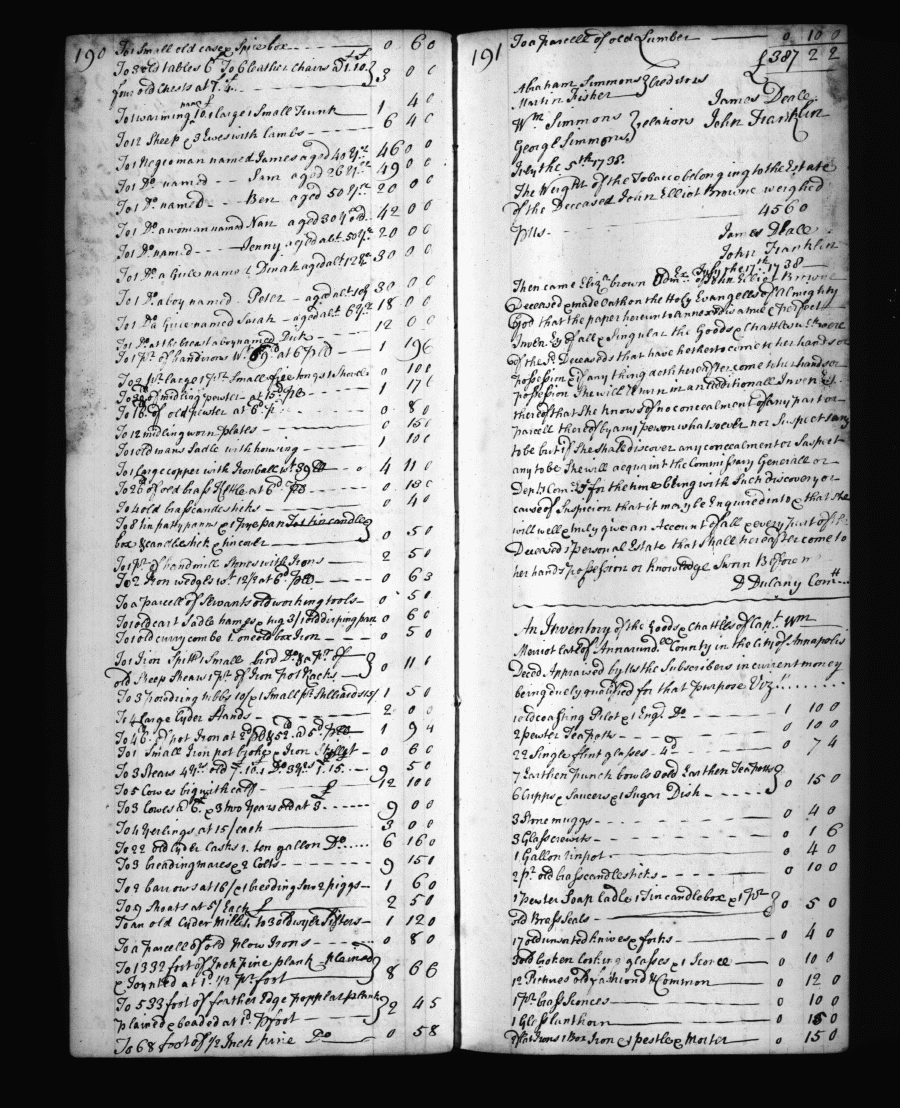 190
To 1 Small old case & Spice box 0 6 0
To 3 old tables 6/ To 6 leather Chairs at 1.10
four old Chests at 1.4 3 0 0
To 1 warming pan & 1 large 1 Small Trunk 1 4 0
To 12 Sheep & 3 Ewes with lambs 6 4 0
To 1 Negro man named James aged 40 yrs 46 0 0
To 1 Do named Sam aged 26 yrs 49 0 0
To 1 Do named Ben aged 50 yrs 20 0 0
To 1 Do a woman named Nan aged 30 yrs old 42 0 0
To 1 Do named Jenny aged abt 50 yrs 20 0 0
To 1 Do a Girle named Dinah aged abt 12 yrs 30 0 0
To 1 Do a boy named Peter aged abt 10 yrs 30 0 0
To 1 Do a Girle named Sarah aged abt 6 yrs 18 0 0
To 1 Do at the breast a boy named Dick 12 0 0
To 1 pr of handirons Wt 59 at 6 p lb 1 19 6
To 2 pr large 1 pr Small fire tongs 1 Shovel 0 10 0
To of midling pewter at 15d p lb 1 17 6
To 16 of old pewter at 6d 0 8 0
To 12 midling worn plates 0 15 0
To 1 old mans Sadle with howsing 1 10 0
To 1 large copper with Iron ball wt 39 4 11 0
To 26 of old brass Kettle at 6d p lb 0 13 0
To 4 old brass candlesticks 0 4 0
To 8 tin patty panns & 1 frye pan To 1 tin candle
box & candlestick & tin cover 0 5 0
To 1 pr of handmill Stones with Irons 2 5 0
To 2 Iron wedges wt 12½ at 6d p lb 0 6 3
To a parcell of Servants old working tools 0 5 0
To 1 old cart Sadle hames & tug 3/ 1 old driping pan 0 6 0
To 1 old curry combe & one old box Iron 0 5 0
To 1 Iron Spitt 1 Small bird Do & a pr of
old Sheep Shears 1 pr of Iron pot Racks 0 11 6
To 3 powdring tubbs 10/ & 1 Small pr Stilliards 15/ 1 5 0
To 4 large Cyder Stands 2 0 0
To 46 of pot Iron at 2d p lb & 52 at 5d p lb 1 9 4
To 1 Small Iron pot broke & Iron Skillet 0 6 0
To 3 Stears 4 yrs old 7.10.1 Do 3 yrs 1.15 9 5 0
To 5 Cowes big with calf 12 10 0
To 3 Cowes at 6 & 3 two Years old at 3 9 0 0
To 4 Yerlings at 15/ each 3 0 0
To 22 old Cyder Casks 1 ten gallon Do 6 16 0
To 3 breading mares & 2 Colts 9 15 0
To 2 barrows at 16/ & 1 breeding Sow 2 piggs 1 6 0
To 9 Shoats at 5/ Each 2 5 0
To an old Cyder Mill & to 3 old wyer Sifters 1 12 0
To a parcell of old plow Irons 0 8 0
To 1332 foot of Inch pine plank plained
& Joynted at 1d ½ p foot 8 6 6
To 533 foot of feather Edge popplar plank
plained & beaded at 1d p foot 2 4 5
To 68 foot of ½ Inch pine Do 0 5 8
191
To a parcell of old Lumber 0 10 0
£387 2 2
Abraham Simmons
Martin Fisher } Creditors
James Deale
Wm Simmons
George Simmons } relations John Franklin
July the 5th 1738.
The Weight of the Tobacco belonging to the Estate
of the Deceased John Elliot Browne weighed
plls 4560
James Deale
John Franklin
July the 17th 1738
Then came Eliza brown Admx of John Elliot Browne
Deceased & made oath on the Holy Evangelles of Almighty
God that the paper hereunto Annexed is a true & perfect
Inventry of all & Singular the Goods & Chattles wch were
of the sd Deceaseds that have hetherto come to her hands or
possession & if any thing doth hereafter come to her hands or
possession She will return in an additionall Inventy
thereof that She knows of no concealment of any part or
parcell thereof by any person whatsoever nor Suspects any
to be but if She Shall discover any concealment or Suspect
any to be She will acquaint the Commissary Generall or
Depty Comry for the time being with Such discovery or
cause of Suspicion that it may be Enquired into & that She
will well & truly give an Account of all & every part of the
Deceaseds personal Estate that Shall hereafter come to
her hands possession or knowledge Sworn Before me
D Dulany Comry
An Inventory of the Goods & Chattles of Capt Wm
Meriot late of Annarundl County in the City of Annapolis
Deced Appraised by Us the Subscribers in current money
being duely qualified for that purpose Viz:
1 old coasting Pilot & 1 Engl Do 1 10 0
2 pewter Teapotts 0 10 0
22 Single flint glasses 4d 0 7 4
7 Earthen punch bowls 3 old Earthen Teapotts
6 Cupps & Saucers & 1 Sugar Dish 0 15 0
3 Stone muggs 0 4 0
3 Glass crewits 0 1 6
1 Gallon tinpot 0 4 0
2 pr old brass candlesticks 0 10 0
1 pewter Soap Ladle & 1 Tin candlebox & 1 pr
old Brass Seals 0 5 0
17 old unsorted knives & forks 0 4 0
3 old broken looking glasses & 1 Sconce 0 10 0
12 Pictures old fashiond & Common 0 12 0
1 pr brass Sconces 0 10 0
1 Glass lanthorn 0 15 0
2 flat Irons 1 Box Iron & 1 pestle & Morter 0 15 0